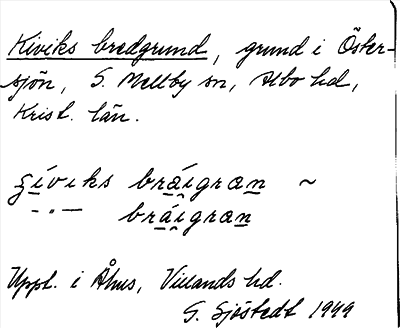 Kiviks bredgrund, grund i Öster-
sjön, S. Mellby sn, Albo hd,
Krist. län.
ʒíviks bráigran ~
-„- bráigran
Uppt. i Åhus, Villands hd.
G. Sjöstedt 1949